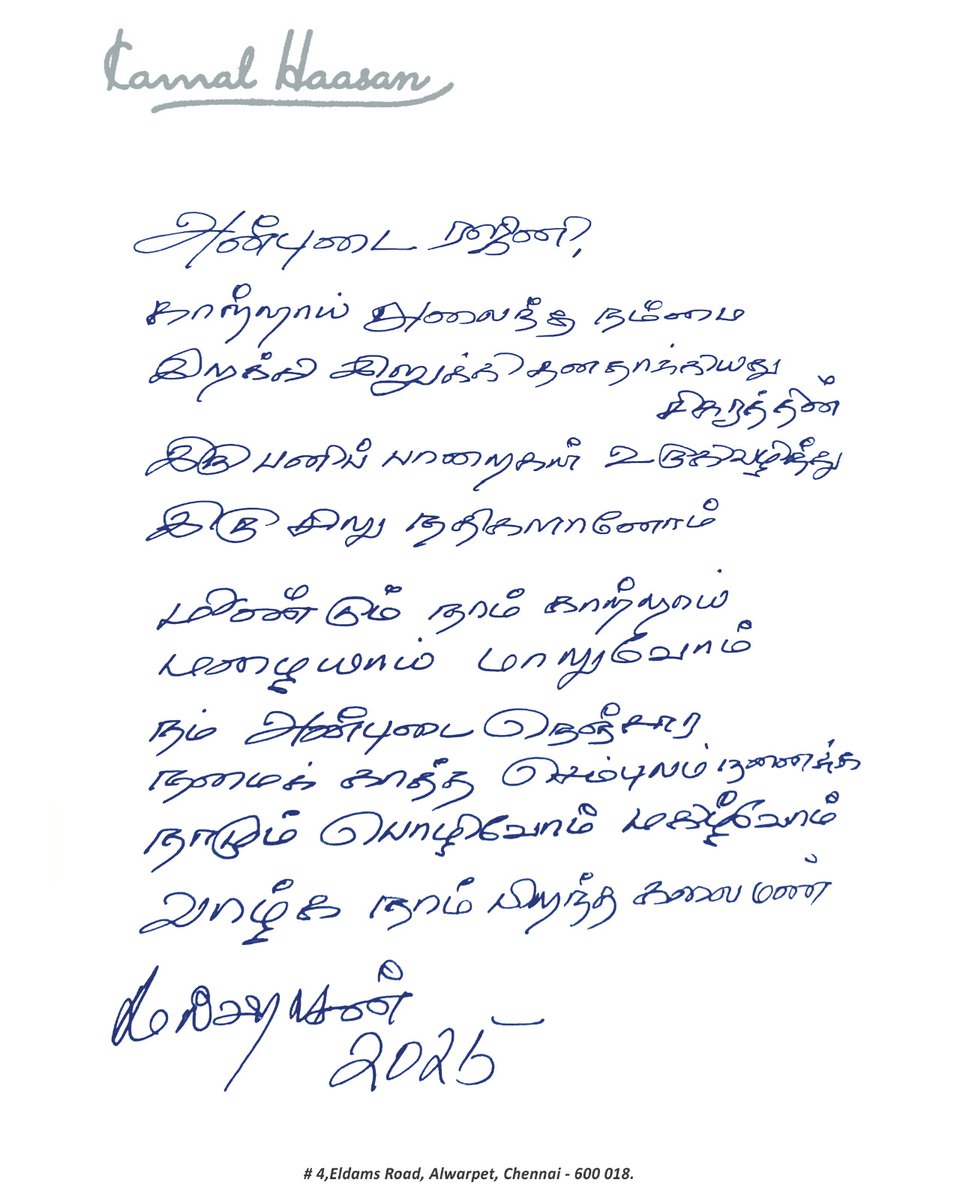 Kamal Haasan
அன்புடை ரஜினி,
காற்றாய் அலைந்த நம்மை
இறக்கி இறுக்கி தனதாக்கியது
சிகரத்தின்
இரு பனிப் பாறைகள் உருகிவழிந்து
இரு சிறு நதிகளானோம்
மீண்டும் நாம் காற்றாய்
மழையாய் மாறுவோம்
நம் அன்புடை நெஞ்சார
நமைக் காத்த செம்புலம் நனைக்க
நாடும் பொழிவோம் மகிழ்வோம்
வாழ்க நாம் பிறந்த கலை மண்
2025
# 4,Eldams Road, Alwarpet, Chennai - 600 018.